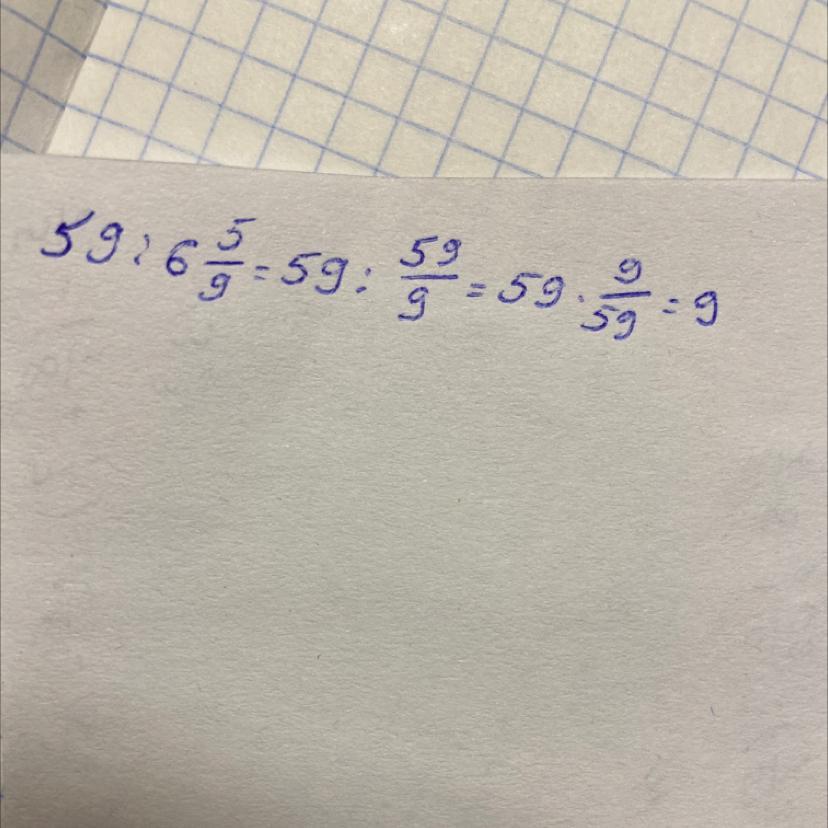 59 : 6 5/9 = 59 : 59/9 = 59 · 9/59 = 9